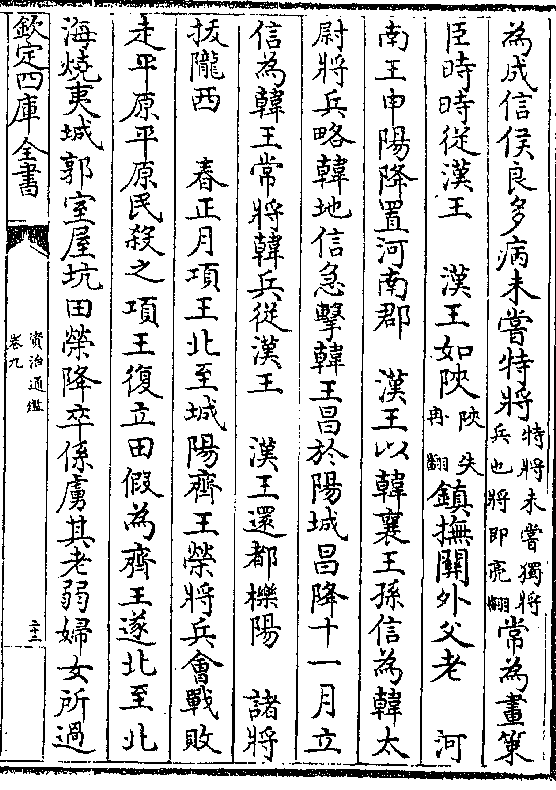 為成信侯良多病未嘗特將特將未嘗獨將兵也將即亮翻常為畫策
臣時時從漢王　漢王如陜陜失冉翻鎮撫關外父老　河
南王申陽降置河南郡　漢王以韓襄王孫信為韓太
尉將兵略韓地信急擊韓王昌於陽城昌降十一月立
信為韓王常將韓兵從漢王　漢王還都櫟陽　諸將
拔隴西　春正月項王北至城陽齊王榮將兵會戰敗
走平原平原民殺之項王復立田假為齊王遂北至北
海燒夷城郭室屋坑田榮降卒係虜其老弱婦女所過
欽定四庫全書　資治通鑑卷九　二十二